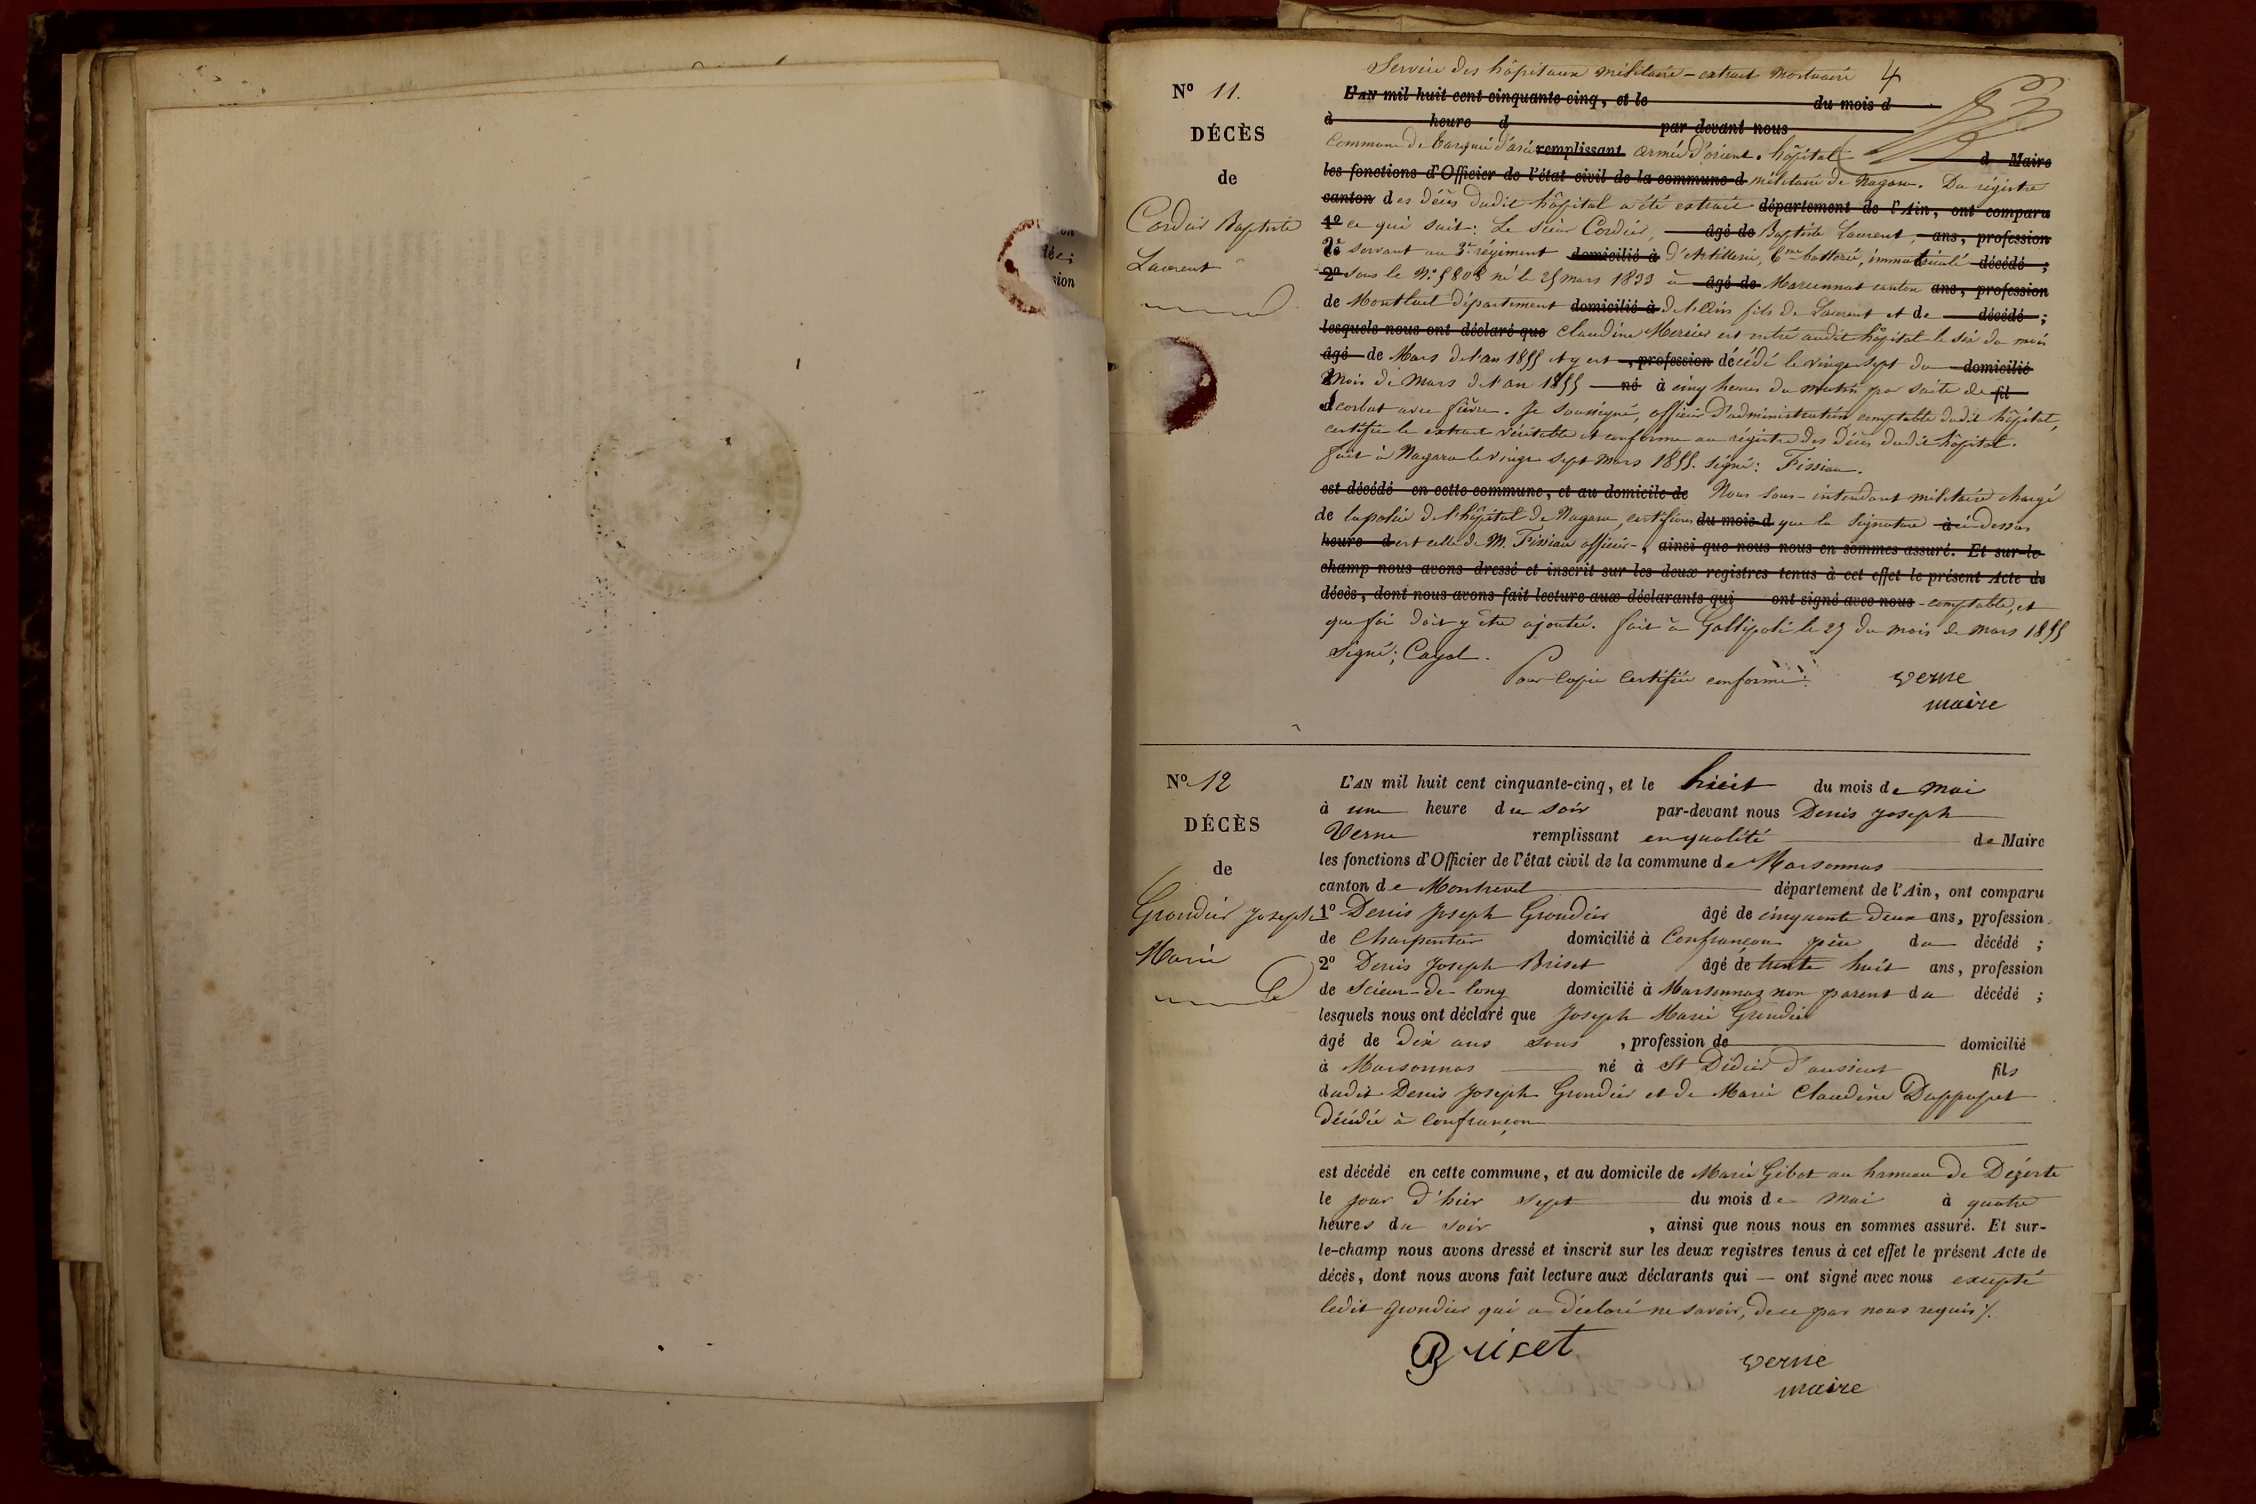 on
déc;
sion
Service des hôpitaux militaire - extrait mortuaire 4
Nº 11.
L'AN mil huit cent cinquante-cinq, et le du mois d
à heure d par devant nous
DÉCÈS
Commune de remplissant armée d'orient. hôpital d Maire
de
les fonctions d'Officier de l'état civil de la commune d militaire de Nagara. Du régistre
canton des décès dudit hôpital a été extrait département de l'Ain, ont comparu
Cordier Baptiste
1º ce qui suit: Le sieur Cordier, âgé de Baptiste Laurent, ans, profession
Laurent
de servant au 3e régiment domicilié à d'Artillerie, 6me batterie, immatriculé décédé ;
2º sous le Nº 5808 né le 25 mars 1833 à âgé de Marsonnat canton ans, profession
de Montluel département domicilié à de l'Ain fils de Laurent et de décédé ;
lesquels nous ont déclaré que Claudine Mercier est entré audit hôpital le six du mois
âgé de Mars de l'an 1855 et y est , profession décédé le vingt sept du domicilié
mois de Mars de l'an 1855 né à cinq heures du matin par suite de fil
scorbut avec fièvre. Je soussigné, officier d'administration comptable dudit hôpital,
certifie le extrait véritable et conforme au régistre des décès dudit hôpital.
fait à Nagara le vingt sept mars 1855. signé: Fission.
est décédé en cette commune, et au domicile de Nous sous-intendant militaire chargé
de la police de l'hôpital de Nagara, certifions du mois d que la signature à ci dessus
heure d est celle de M. Fission officier-, ainsi que nous nous en sommes assuré. Et sur-le
champ nous avons dressé et inscrit sur les deux registres tenus à cet effet le présent Acte de
décès, dont nous avons fait lecture aux déclarants qui ont signé avec nous - comptable, et
que foi doit y être ajoutée. fait à Gallipoli le 29 du mois de mars 1855
signé: Cayol.
Pour copie certifiée conforme:
verne
maire
Nº 12
L'AN mil huit cent cinquante-cinq, et le huit du mois de mai
à une heure du soir par-devant nous Denis Joseph
DÉCÈS
Verne remplissant en qualité de Maire
les fonctions d'Officier de l'état civil de la commune de Marsonnas
de
canton de Montrevel département de l'Ain, ont comparu
Grondier Joseph
1º Denis Joseph Grondier âgé de cinquante deux ans, profession
de Charpentier domicilié à Confrançon père du décédé ;
Marie
2º Denis Joseph Briset âgé de trente huit ans, profession
de Scieur-de-long domicilié à Marsonnas non parent du décédé ;
lesquels nous ont déclaré que Joseph Marie Grondier
âgé de dix ans sans , profession de domicilié
à Marsonnas né à St Didier d'aussiat fils
dudit Denis Joseph Grondier et de Marie Claudine
décédée à Confrançon
est décédé en cette commune, et au domicile de Marie Gibot au hameau de Dézerte
le jour d'hier sept du mois de mai à quatre
heures du soir , ainsi que nous nous en sommes assuré. Et sur-
le-champ nous avons dressé et inscrit sur les deux registres tenus à cet effet le présent Acte de
décès, dont nous avons fait lecture aux déclarants qui — ont signé avec nous excepté
ledit grondier qui a déclaré ne savoir, de ce par nous requis ⁒.
Briset
verne
maire